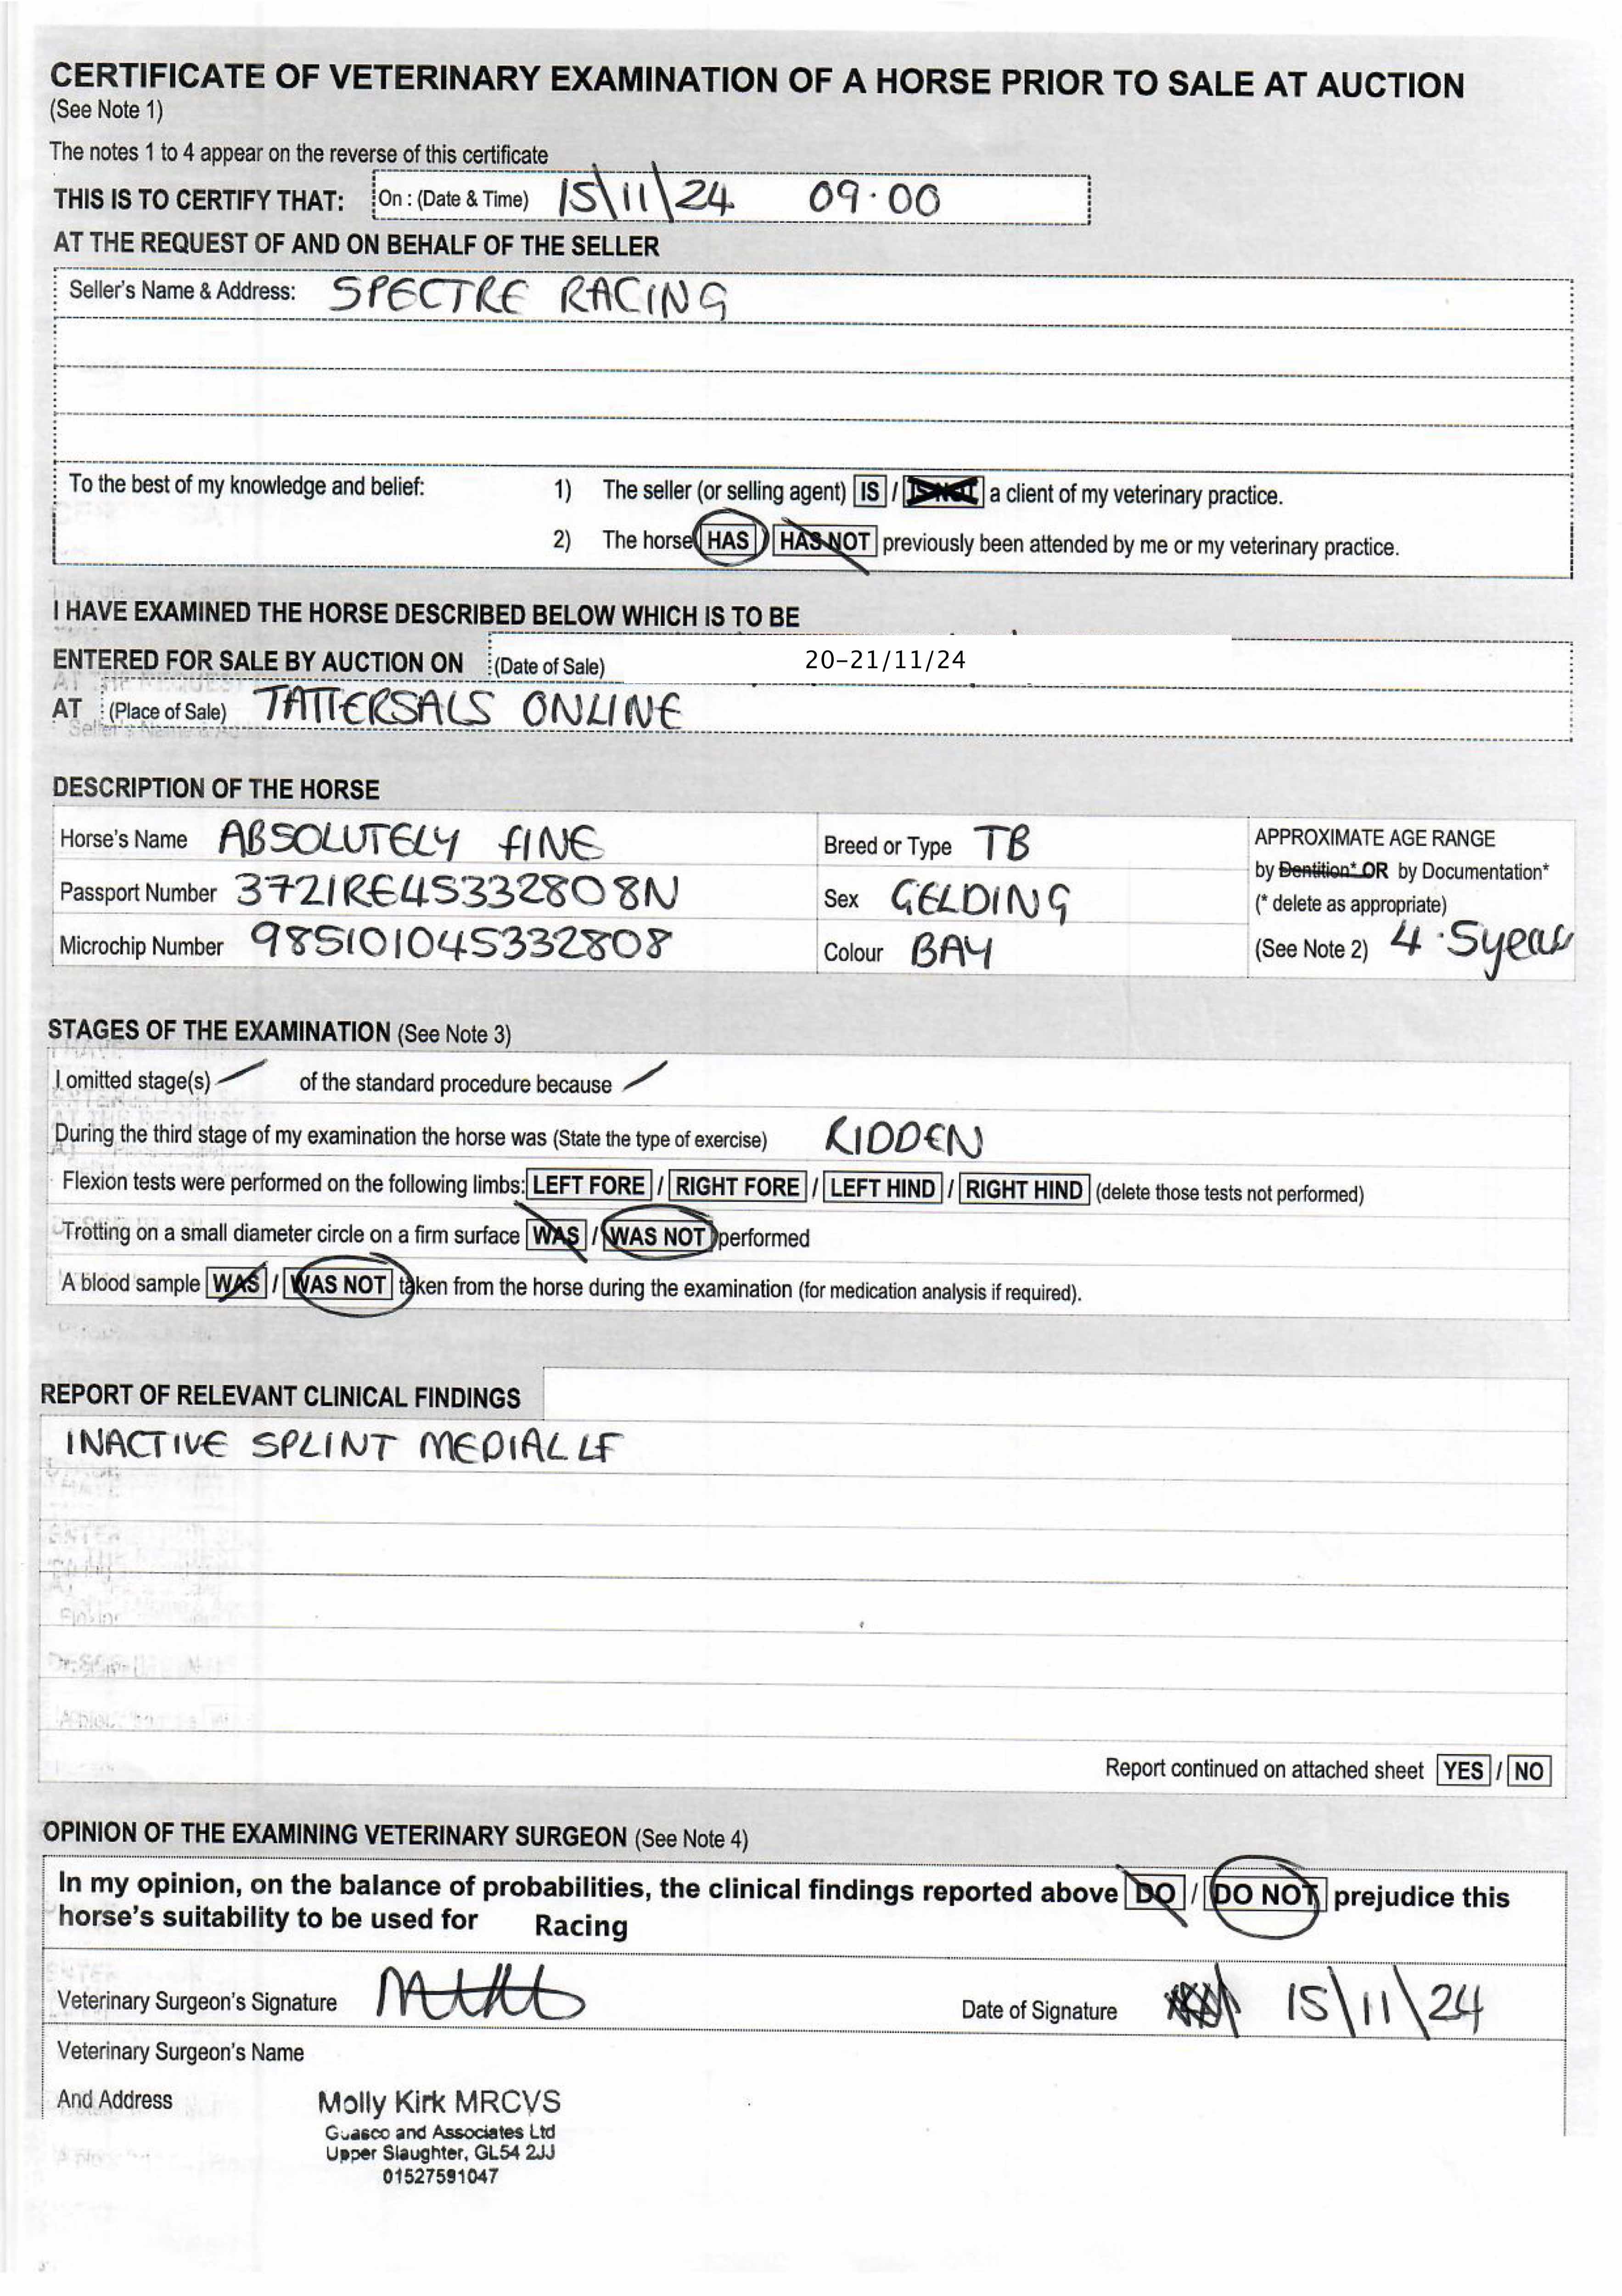 CERTIFICATE OF VETERINARY EXAMINATION OF A HORSE PRIOR TO SALE AT AUCTION
(See Note 1)
The notes 1 to 4 appear on the reverse of this certificate
THIS IS TO CERTIFY THAT: On : (Date & Time) 15\11\24 09.00
AT THE REQUEST OF AND ON BEHALF OF THE SELLER
Seller's Name & Address: SPECTRE RACING
To the best of my knowledge and belief: 1) The seller (or selling agent) IS / IS NOT a client of my veterinary practice.
2) The horse HAS / HAS NOT previously been attended by me or my veterinary practice.
I HAVE EXAMINED THE HORSE DESCRIBED BELOW WHICH IS TO BE
ENTERED FOR SALE BY AUCTION ON (Date of Sale) 20-21/11/24
AT (Place of Sale) TATTERSALS ONLINE
DESCRIPTION OF THE HORSE
Horse's Name ABSOLUTELY FINE Breed or Type TB APPROXIMATE AGE RANGE
by Dentition* OR by Documentation*
Passport Number 372IRE45332808N Sex GELDING (* delete as appropriate)
Microchip Number 985101045332808 Colour BAY (See Note 2) 4.5years
STAGES OF THE EXAMINATION (See Note 3)
I omitted stage(s) / of the standard procedure because /
During the third stage of my examination the horse was (State the type of exercise) RIDDEN
Flexion tests were performed on the following limbs: LEFT FORE / RIGHT FORE / LEFT HIND / RIGHT HIND (delete those tests not performed)
Trotting on a small diameter circle on a firm surface WAS / WAS NOT performed
A blood sample WAS / WAS NOT taken from the horse during the examination (for medication analysis if required).
REPORT OF RELEVANT CLINICAL FINDINGS
INACTIVE SPLINT MEDIAL LF
Report continued on attached sheet YES / NO
OPINION OF THE EXAMINING VETERINARY SURGEON (See Note 4)
In my opinion, on the balance of probabilities, the clinical findings reported above DO / DO NOT prejudice this
horse's suitability to be used for Racing
Veterinary Surgeon's Signature Date of Signature 15\11\24
Veterinary Surgeon's Name
And Address Molly Kirk MRCVS
Guasco and Associates Ltd
Upper Slaughter, GL54 2JJ
01527591047